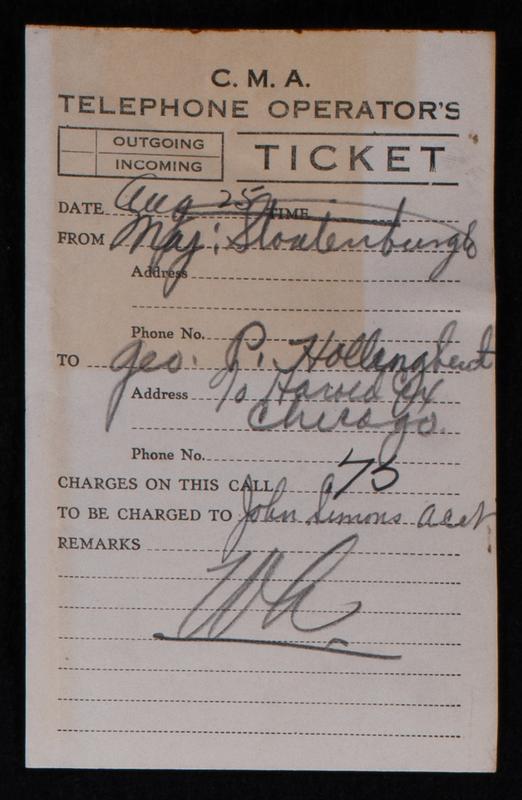 C. M. A.
TELEPHONE OPERATOR'S
OUTGOING
INCOMING
TICKET
DATE Aug 25 TIME
FROM Maj: Stoutenburgh
Address
Phone No.
TO Geo. P.
Address Harold
Chicago.
Phone No.
CHARGES ON THIS CALL 75
TO BE CHARGED TO John Simons acct
REMARKS